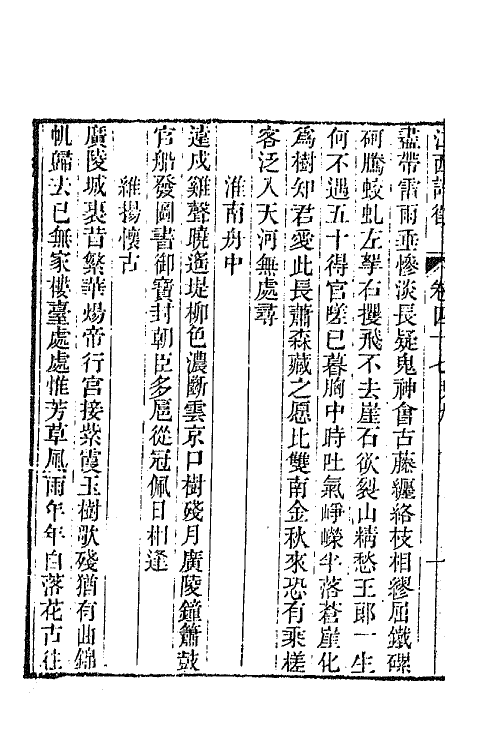 江西詩徵 卷四十七
盡帶雷雨垂慘淡長疑鬼神會古藤纏絡枝相繆屈鐵磥
砢騰蛟虬左拏右攫飛不去崖石欲裂山精愁王郎一生
何不遇五十得官嗟已暮胸中時吐氣崢嶸半落蒼崖化
爲樹知君愛此長蕭森藏之愿比雙南金秋來恐有乘槎
客泛入天河無處尋
淮南舟中
遠戍雞聲曉遙堤柳色濃斷雲京口樹殘月廣陵鐘簫鼓
官船發圖書御寶封朝臣多扈從冠佩日相逢
維揚懷古
廣陵城裏昔繁華煬帝行宮接紫霞玉樹歌殘猶有曲錦
帆歸去已無家樓臺處處惟芳草風雨年年自落花古往